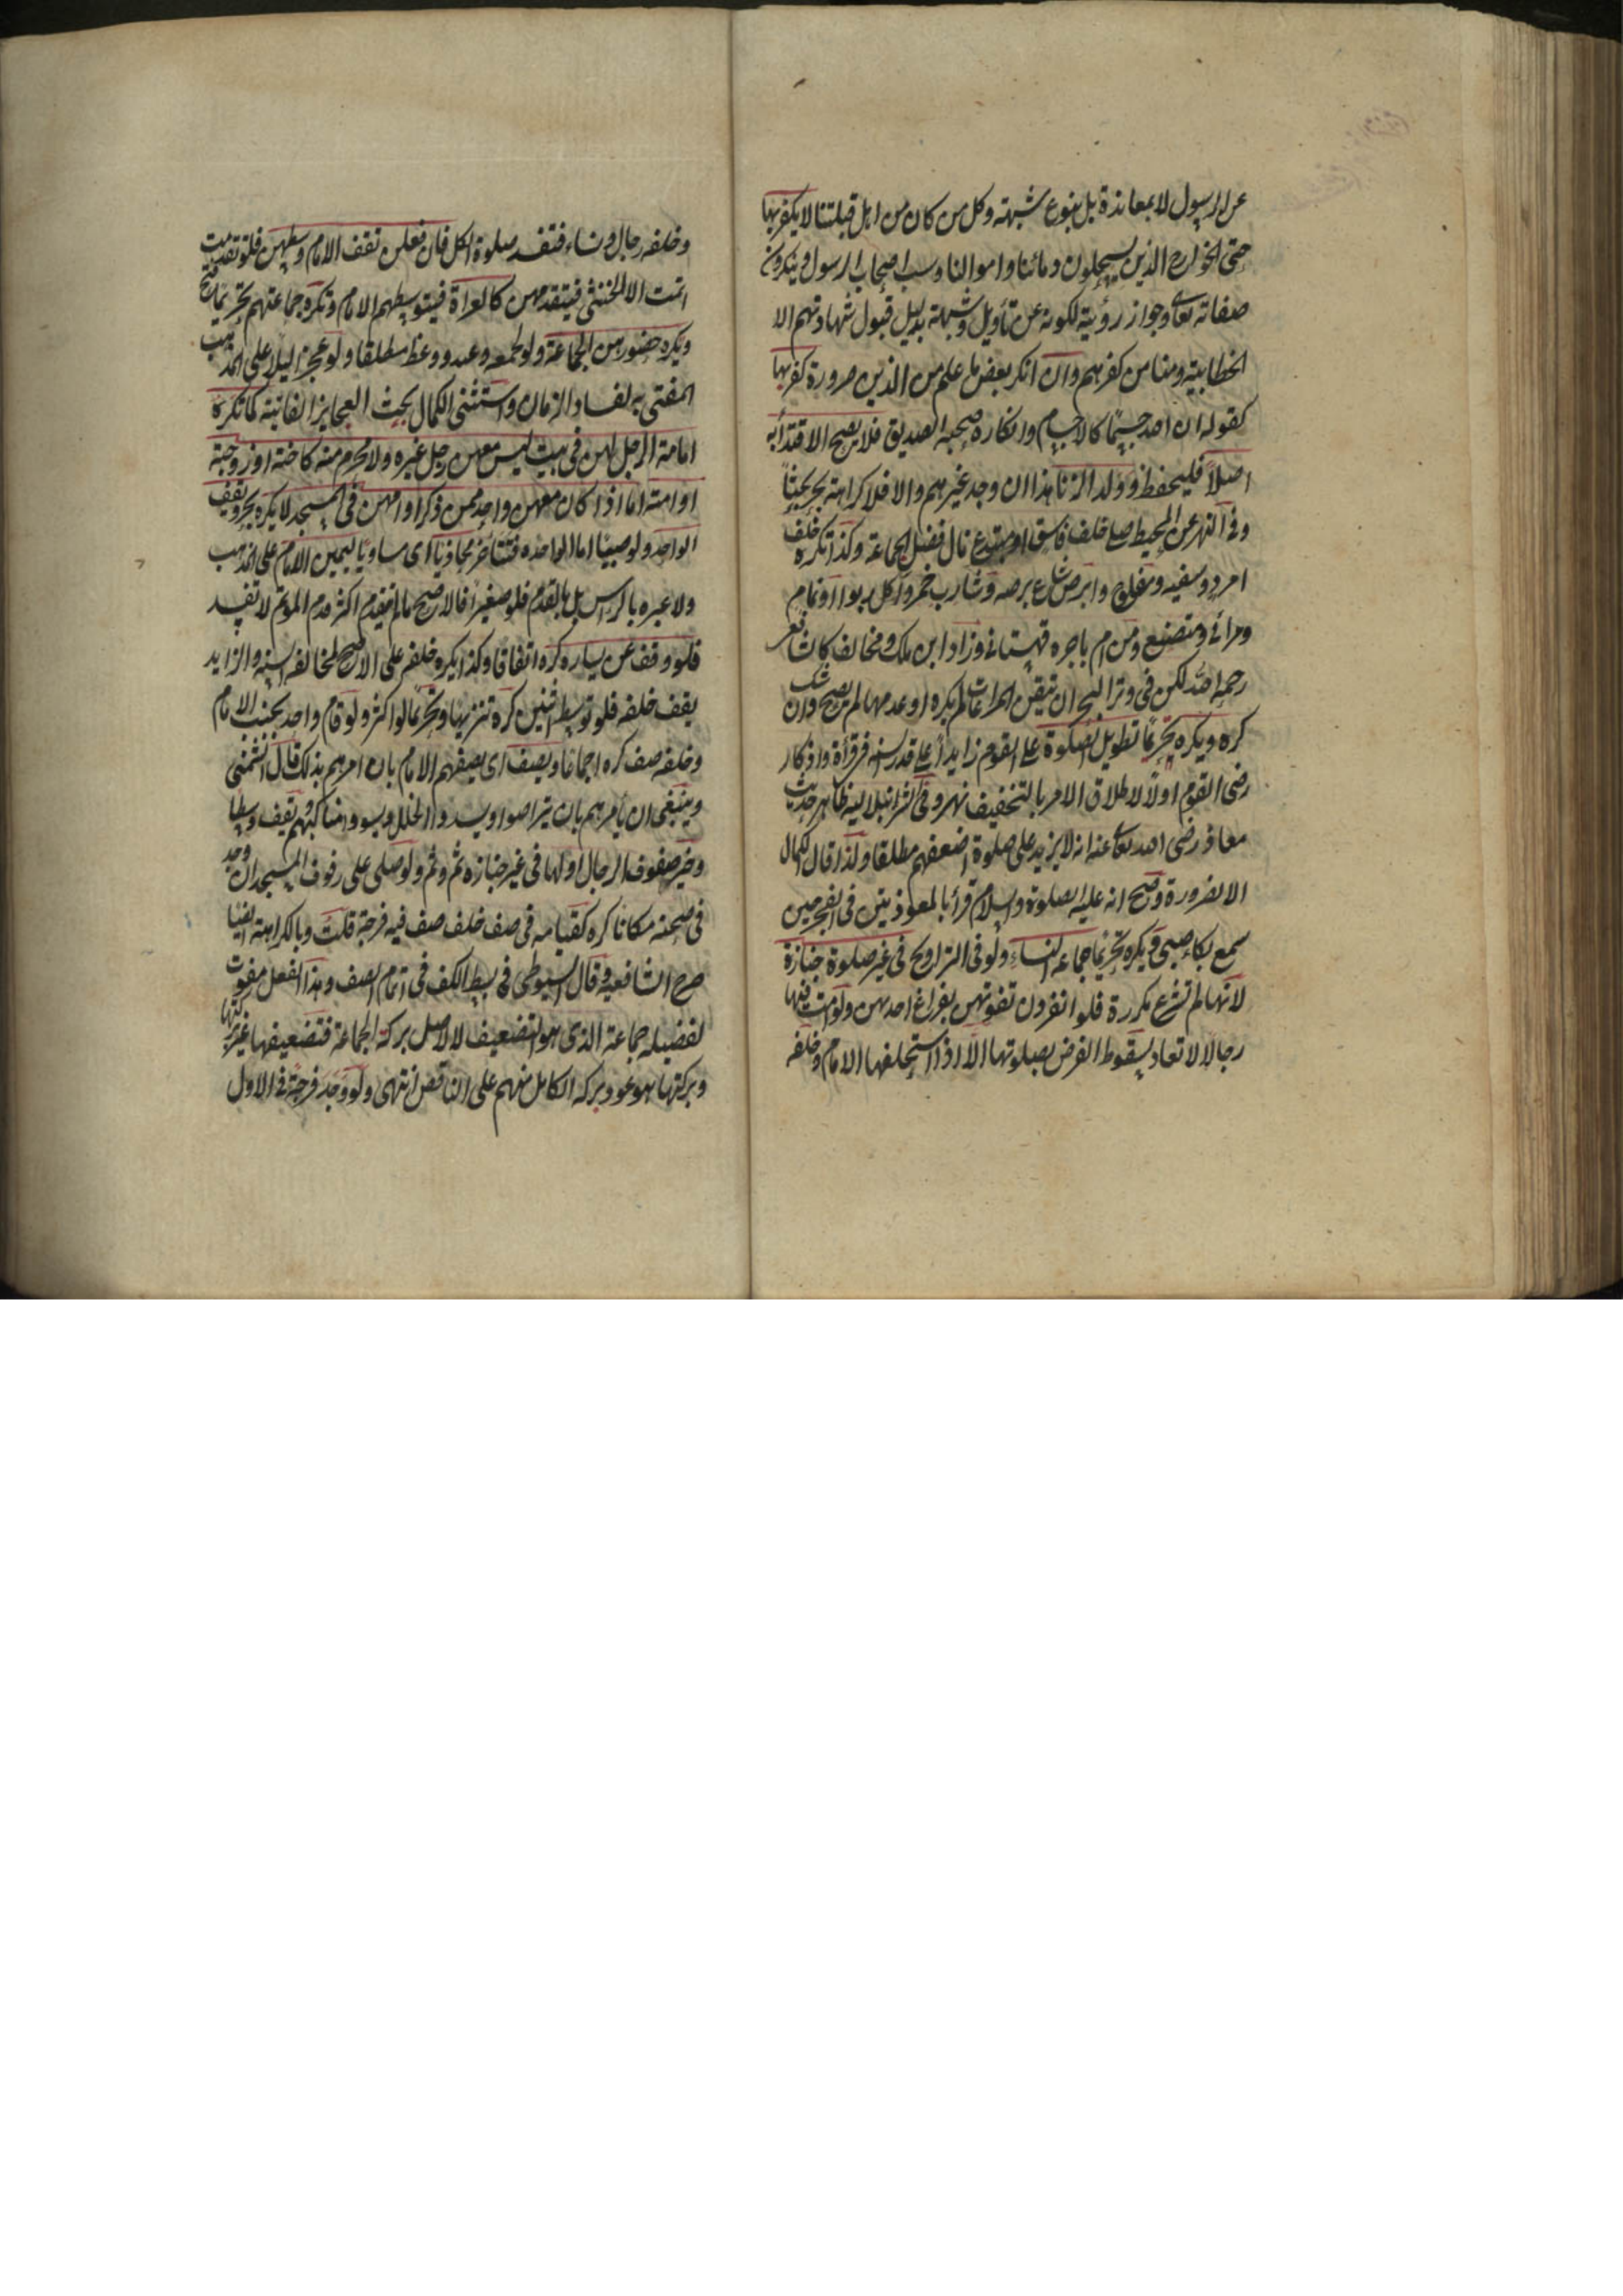 عن الرسول لا بمعاندة بل بنوع شبهة وكل من كان من اهل قبلتنا لا يكفر بها
حتى الخوارج الذين يستحلون دمائنا واموالنا وسب اصحاب الرسول وينكرون
صفاته تعالى وجواز رؤيته لكونه عن تأويل وشبهة بدليل قبول شهادتهم الا
الخطابية ومنا من كفرهم وان انكر بعض ما علم من الدين ضرورة كفر بها
كقوله ان الله جسمًا كالاجسام وانكاره صحبة الصديق فلا يصح الاقتدأ به
اصلًا فليحفظ وولد الزنا هذا ان وجد غيرهم والا فلا كراهة بحر بحثًا
وفي النهر عن المحيط صلى خلف فاسق او مبتدع نال فضل الجماعة وكذا تكره خلف
امرد وسفيه ومفلوج وابرص شاع برصه وشارب خمر وآكل ربوا ونمام
ومرائي ومتصنع ومن ام باجرة قهستاني وزاد ابن ملك ومخالف كشافعي
رحمه الله لكن في وتر البحر ان تيقن المراعات لم يكره او عدمها لم يصح وان شك
كره ويكره تحريمًا تطويل الصلوة على القوم زايدًا على قدر السنة في قرأة واذكار
رضى القوم او لا لاطلاق الامر بالتخفيف نهر وفي الشرنبلالية ظاهر حديث
معاذ رضى الله تعالى عنه انه لا يزيد على صلوة اضعفهم مطلقا ولذا قال الكمال
الا لضرورة وصح انه عليه الصلوة والسلام قرأ بالمعوذتين في الفجر حين
سمع بكاء صبي ويكره تحريمًا جماعة النساء ولو في التراويح في غير صلوة جنازة
لانها لم تشرع مكررة فلو انفردن تفوتهن بفراغ احديهن ولو امت فيها
رجالًا لا تعاد لسقوط الفرض بصلوتها الا اذا استخلفها الامام وخلفه
وخلفه رجال ونساء فتفسد صلوة الكل فان فعلن تقف الامام وسطهن فلو تقدمت
اثمت الا الخنثى فيتقدمهن كالعراة فيتوسطهم الامام وتكره جماعتهم تحريما فتح
ويكره حضورهن الجماعة ولو لجمعة وعيد ووعظ مطلقا ولو عجوز اليلا على المذهب
المفتى به لفساد الزمان واستثنى الكمال بحث العجايز الفانية كما تكره
امامة الرجل لهن في بيت ليس معهن رجل غيره ولا محرم منه كاخته او زوجته
او امته اما اذا كان معهن واحد ممن ذكر او امهن في المسجد لا يكره بحر ويقف
الواحد ولو صبيًا اما الواحدة فتتأخر محاذيًا اى مساويًا ليمين الامام على المذهب
ولا عبرة بالرأس بل بالقدم فلو صغيرًا فالاصح ما لم يتقدم اكثر قدم المؤتم لا تفسد
فلو وقف عن يساره كره اتفاقا وكذا يكره خلفه على الاصح لمخالفة السنة والزايد
يقف خلفه فلو توسط اثنين كره تنزيها وتحريمًا لو اكثر ولو قام واحد بجنب الامام
وخلفه صف كره اجماعًا ويصف اى يصفهم الامام بان امرهم بذلك قال الشمني
وينبغي ان يأمرهم بان يتراصوا ويسدوا الخلل ويسووا مناكبهم ويقف وسطا
وخير صفوف الرجال اولها في غير جنازة ثم وثم ولو صلى على رفوف المسجد ان وجد
في صحنه مكانا كره كقيامه في صف خلف صف فيه فرجة قلت وبالكراهة ايضا
صرح الشافعية وقال السيوطي في بسط الكف في اتمام الصف وهذا الفعل مفوت
لفضيلة جماعة الذى هو التضعيف لا لاصل بركة الجماعة فتضعيفها غير بركتها
وبركتها هو عود بركة الكامل منهم على الناقص انتهى ولو وجد فرجة في الاول